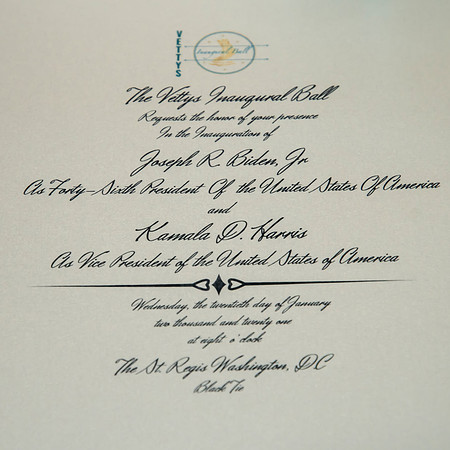 VETTYS
Inaugural Ball
The Vettys Inaugural Ball
Requests the honor of your presence
In the Inauguration of
Joseph R. Biden, Jr
As Forty-Sixth President Of the United States Of America
and
Kamala D. Harris
As Vice President of the United States of America
Wednesday, the twentieth day of January
two thousand and twenty one
at eight o'clock
The St. Regis Washington, DC
Black Tie